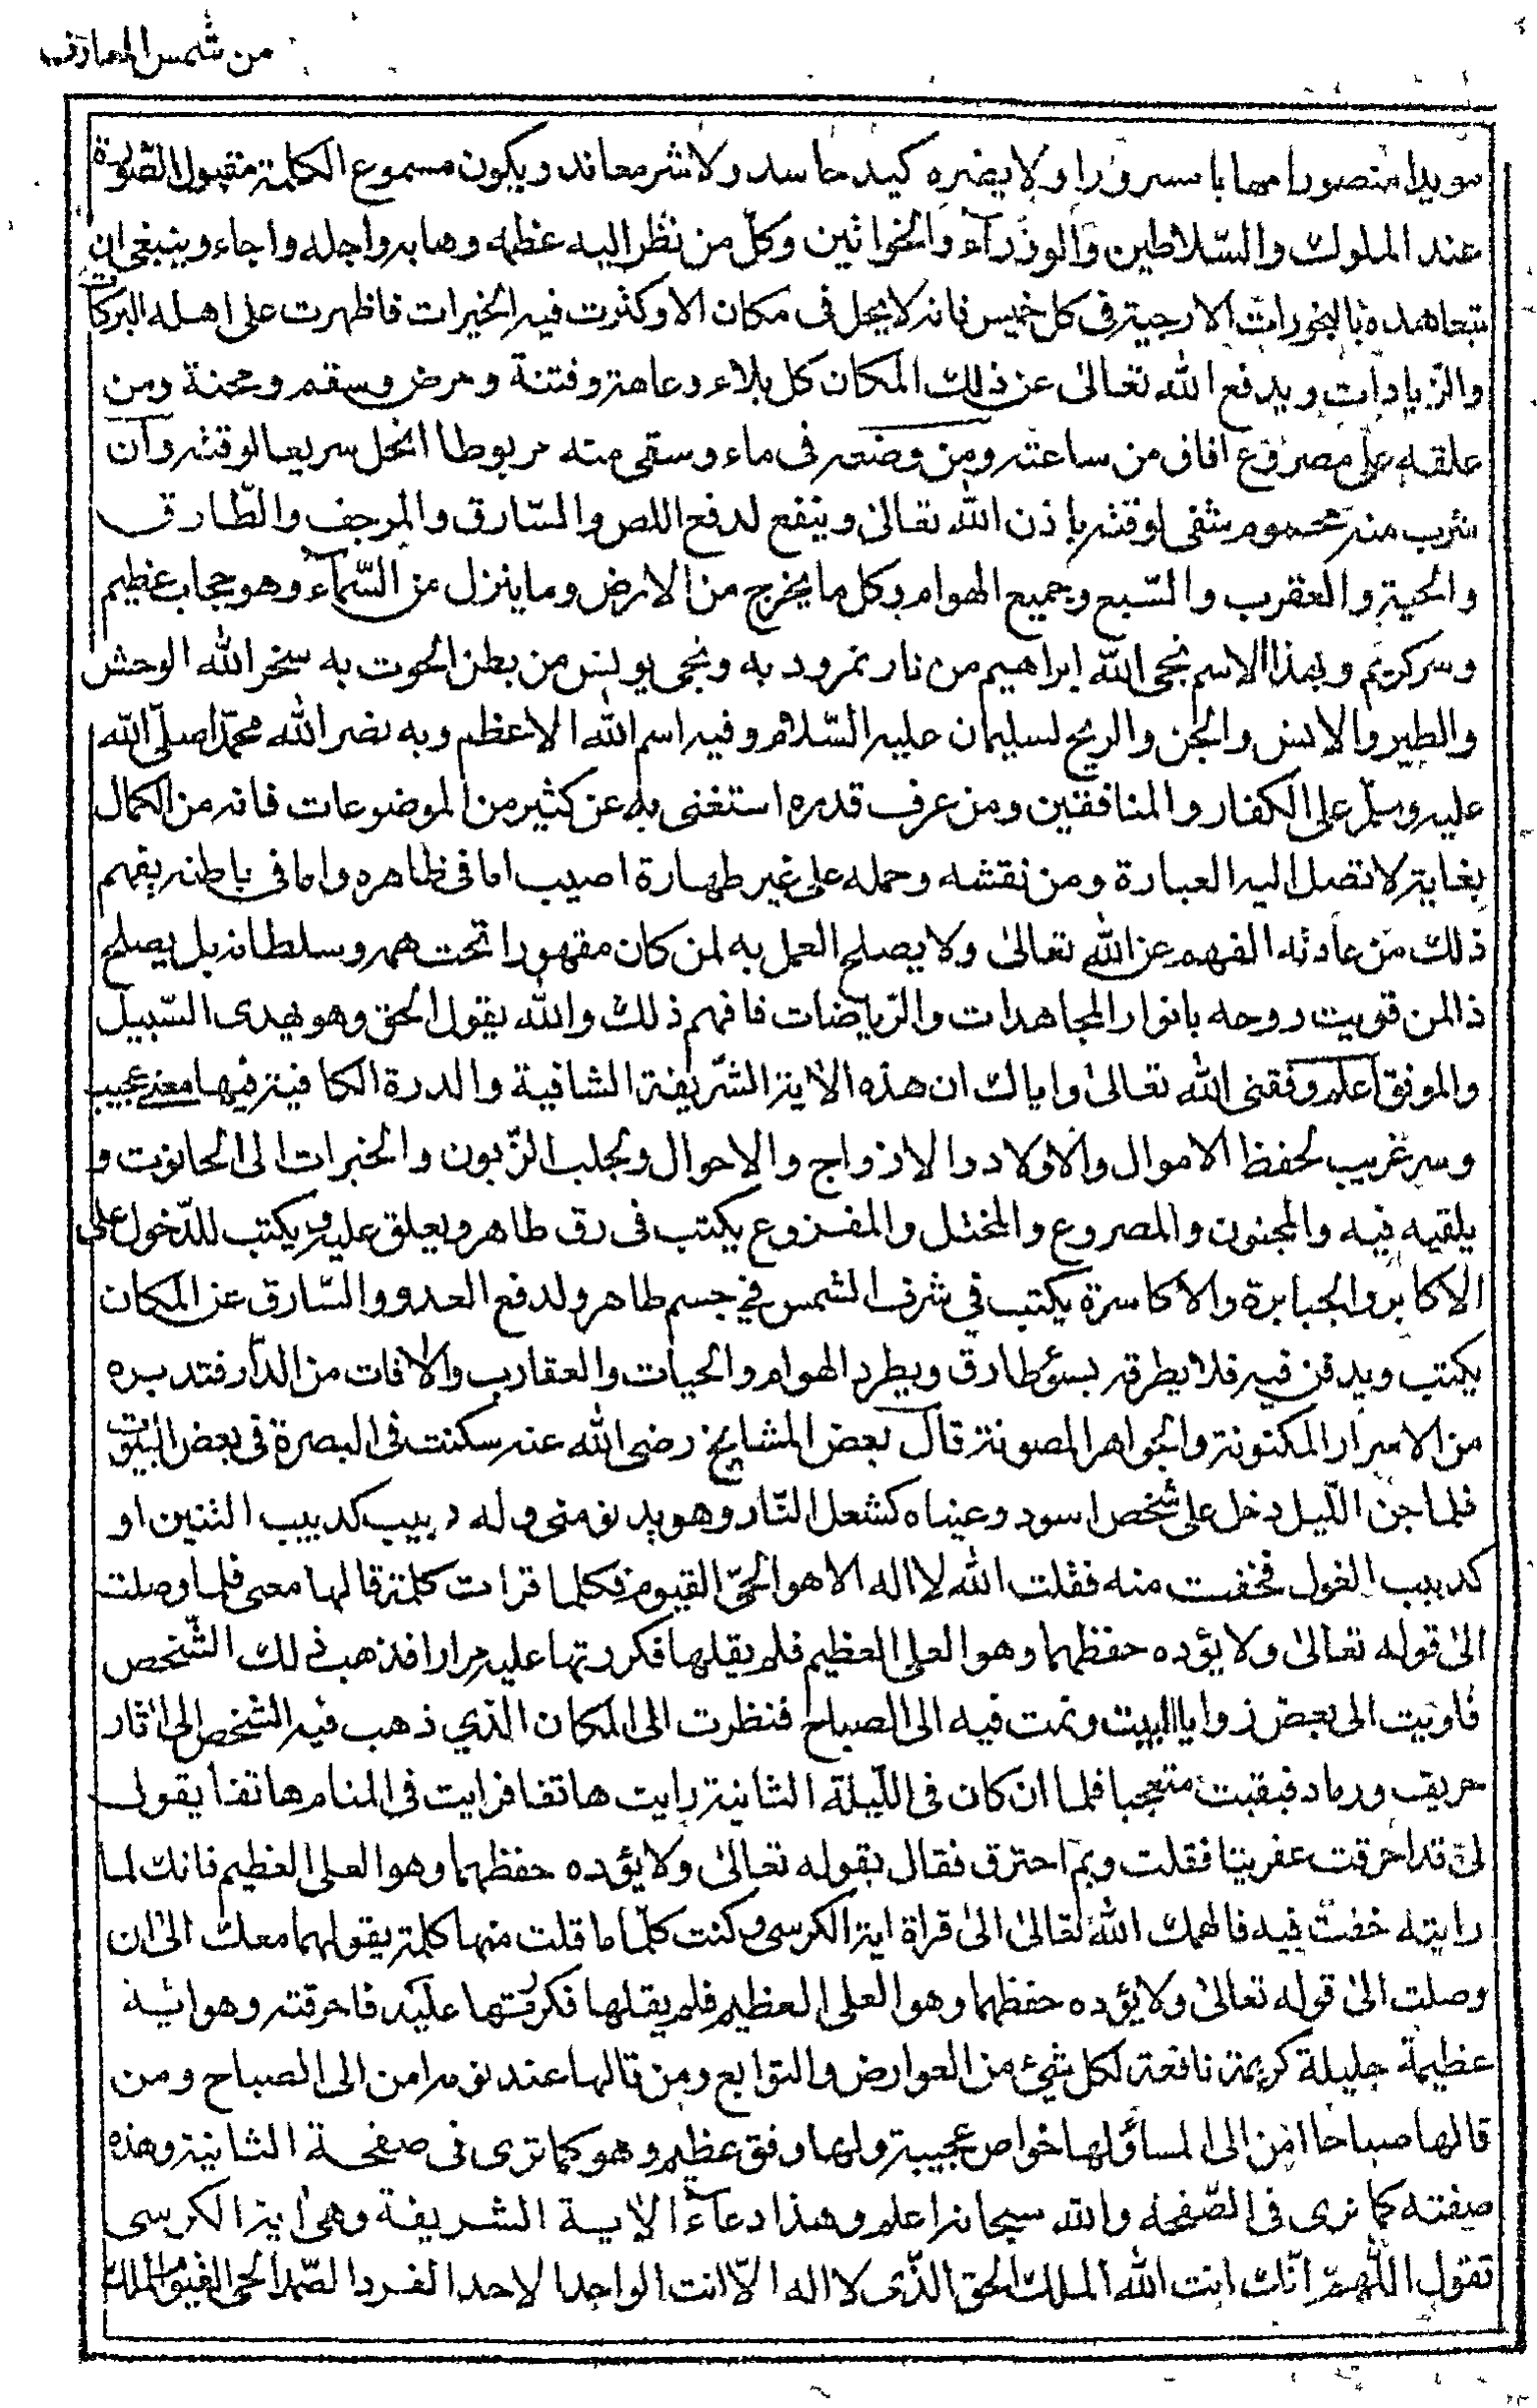 من شمس المعارف
مويدا منصورا مهابا مسرورا ولا يضره كيد حاسد ولا شر معاند ويكون مسموع الكلمة مقبول الصّورة
عند الملوك والسّلاطين والوزرآء والخواتين وكلّ من نظر اليه عظمه وهابه واجله واجاء وينبغى ان
يتعاهده بالبخورات الارجية فى كل خميس فانه لا يحل فى مكان الا وكثرت فيه الخيرات فاظهرت على اهله البركات
والزّيادات ويدفع الله تعالىٰ عن ذلك المكان كل بلاء وعاهة وفتنة ومرض وسقم ومحنة ومن
علقه على مصروع افاق من ساعته ومن وضعه فى ماء وسقى منه مربوطا انحل سريعا لوقته وان
شرب منه محموم شفى لوقته باذن الله تعالىٰ وينفع لدفع اللص والسّارق والمرجف والطّارق
والحية والعقرب والسّبع وجميع الهوام وكل ما يخرج من الارض وما ينزل من السّمآء وهو حجاب عظيم
وسر كريم وبهذا الاسم نجى الله ابراهيم من نار نمرود به ونجى يونس من بطن الحوت به سخر الله الوحش
والطير والانس والجن والريح لسليمان عليه السّلام وفيه اسم الله الاعظم وبه نصر الله محمّدا صلّى الله
عليه وسلّم على الكفار والمنافقين ومن عرف قدره استغنى به عن كثير من الموضوعات فانه من الكمال
بغاية لا تصل اليه العبارة ومن نقشه وحمله على غير طهارة اصيب اما فى ظاهره واما فى باطنه يفهم
ذلك من عادته الفهم عن الله تعالىٰ ولا يصلح العمل به لمن كان مقهورا تحت همه وسلطانه بل يصلح
ذا لمن قويت روحه بانوار المجاهدات والرّياضات فافهم ذلك والله يقول الحق وهو يهدى السّبيل
والموفق اعلم وفقنى الله تعالىٰ واياك ان هذه الاية الشّريفة الشافية والدرة الكافية فيها معنى عجيب
وسر غريب لحفظ الاموال والاولاد والازواج والاحوال ولجلب الزّبون والخيرات الى الحانوت و
يلقيه فيه والمجنون والمصروع والمختل والمفزوع يكتب فى رق طاهر ويعلق عليه ويكتب للدّخول على
الاكابر والجبابرة والاكاسرة يكتب في شرف الشمس في جسم طاهر ولدفع العدو والسّارق عن المكان
يكتب ويدفن فيه فلا يطرقه بسوء طارق ويطرد الهوام والحيات والعقارب والافات من الدّار فتدبره
من الاسرار المكنونة والجواهر المصونة قال بعض المشايخ رضى الله عنه سكنت فى البصرة فى بعض البيوت
فلما جن اللّيل دخل على شخص اسود وعيناه كشعل النّار وهو يدنو منى وله دبيب كدبيب التنين او
كدبيب الغول فخفت منه فقلت الله لا اله الا هو الحىّ القيوم فكلما قرات كلمة قالها معى فلما وصلت
الىٰ قوله تعالىٰ ولا يؤده حفظهما وهو العلى العظيم فلم يقلها فكررتها عليه مرارا فذهب ذلك الشّخص
فاويت الى بعض زوايا البيت ونمت فيه الى الصباح فنظرت الى المكان الذي ذهب فيه الشخص الى اثار
حريق ورماد فبقيت متعجبا فلما ان كان فى اللّيلة الثانية رايت هاتفا فرايت فى المنام هاتفا يقول
لى قد احرقت عفريتا فقلت وبم احترق فقال بقوله تعالىٰ ولا يؤده حفظهما وهو العلى العظيم فانك لما
رايته خفت فيه فالهمك الله تعالىٰ الىٰ قراة اية الكرسى وكنت كلّما قلت منها كلمة يقولهما معك الىٰ ان
وصلت الىٰ قوله تعالىٰ ولا يؤده حفظهما وهو العلى العظيم فلم يقلها فكررتها عليه فاحرقته وهو اية
عظيمة جليلة كريمة نافعة لكل شئ من العوارض والتوابع ومن قالها عند نومه امن الى الصباح ومن
قالها صباحا امن الى المساؤلها خواص عجيبة ولها وفق عظيم وهو كما ترى فى صفحة الثانية وهذه
صفته كما ترى فى الصّفحة والله سبحانه اعلم وهذا دعآء الاية الشريفة وهى اية الكرسى
تقول اللّهمّ انّك انت الله الملك الحق الذّى لا اله الّا انت الواحد الاحد الفرد الصّمد الحى القيوم الملك